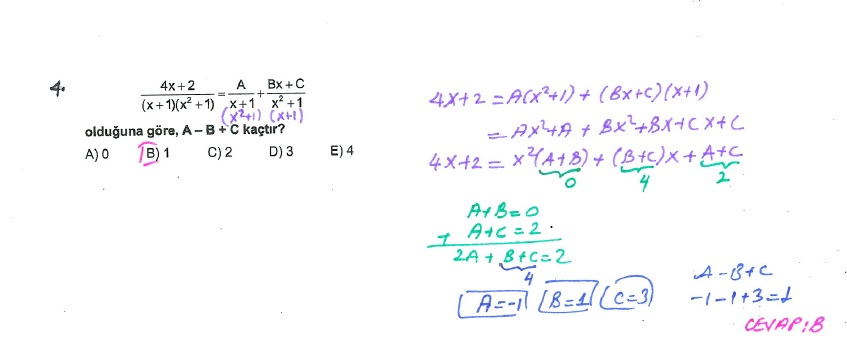 4.
4x+2 / (x+1)(x²+1) = A / x+1 + Bx+C / x²+1
(x²+1) (x+1)
olduğuna göre, A – B + C kaçtır?
A) 0 B) 1 C) 2 D) 3 E) 4
4x+2 = A(x²+1) + (Bx+C)(x+1)
= Ax²+A + Bx²+Bx+Cx+C
4x+2 = x²(A+B) + (B+C)x + A+C
0 4 2
A+B=0
+ A+C=2
2A + B+C=2
4
A=-1 B=1 C=3
A-B+C
-1-1+3=1
CEVAP:B